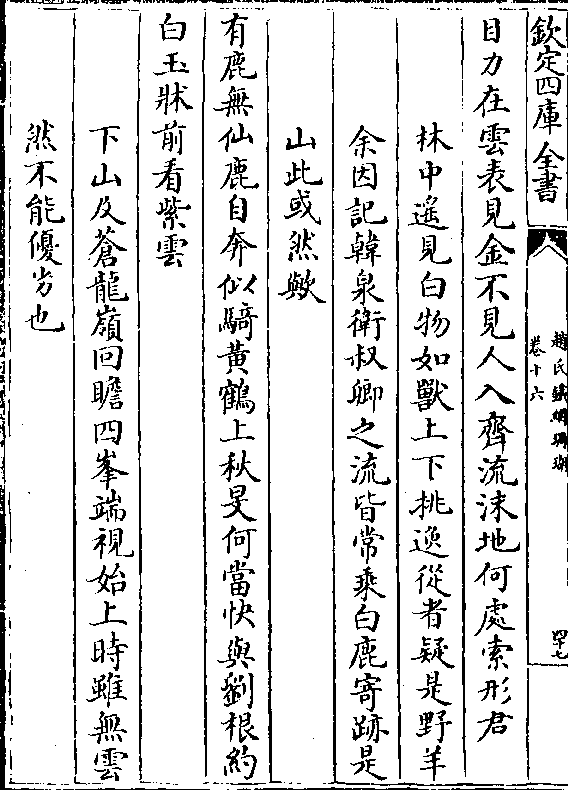 欽定四庫全書
趙氏鐵網珊瑚
卷十六
四十七
目力在雲表見金不見人入齊流沫地何處索形君
林中遙見白物如獸上下挑逸從者疑是野羊
余因記韓泉衛叔卿之流皆常乘白鹿寄跡是
山此或然歟
有鹿無仙鹿自奔似騎黃鶴上秋旻何當快與劉根約
白玉牀前看紫雲
下山及蒼龍嶺回瞻四峯端視始上時雖無雲
然不能優劣也